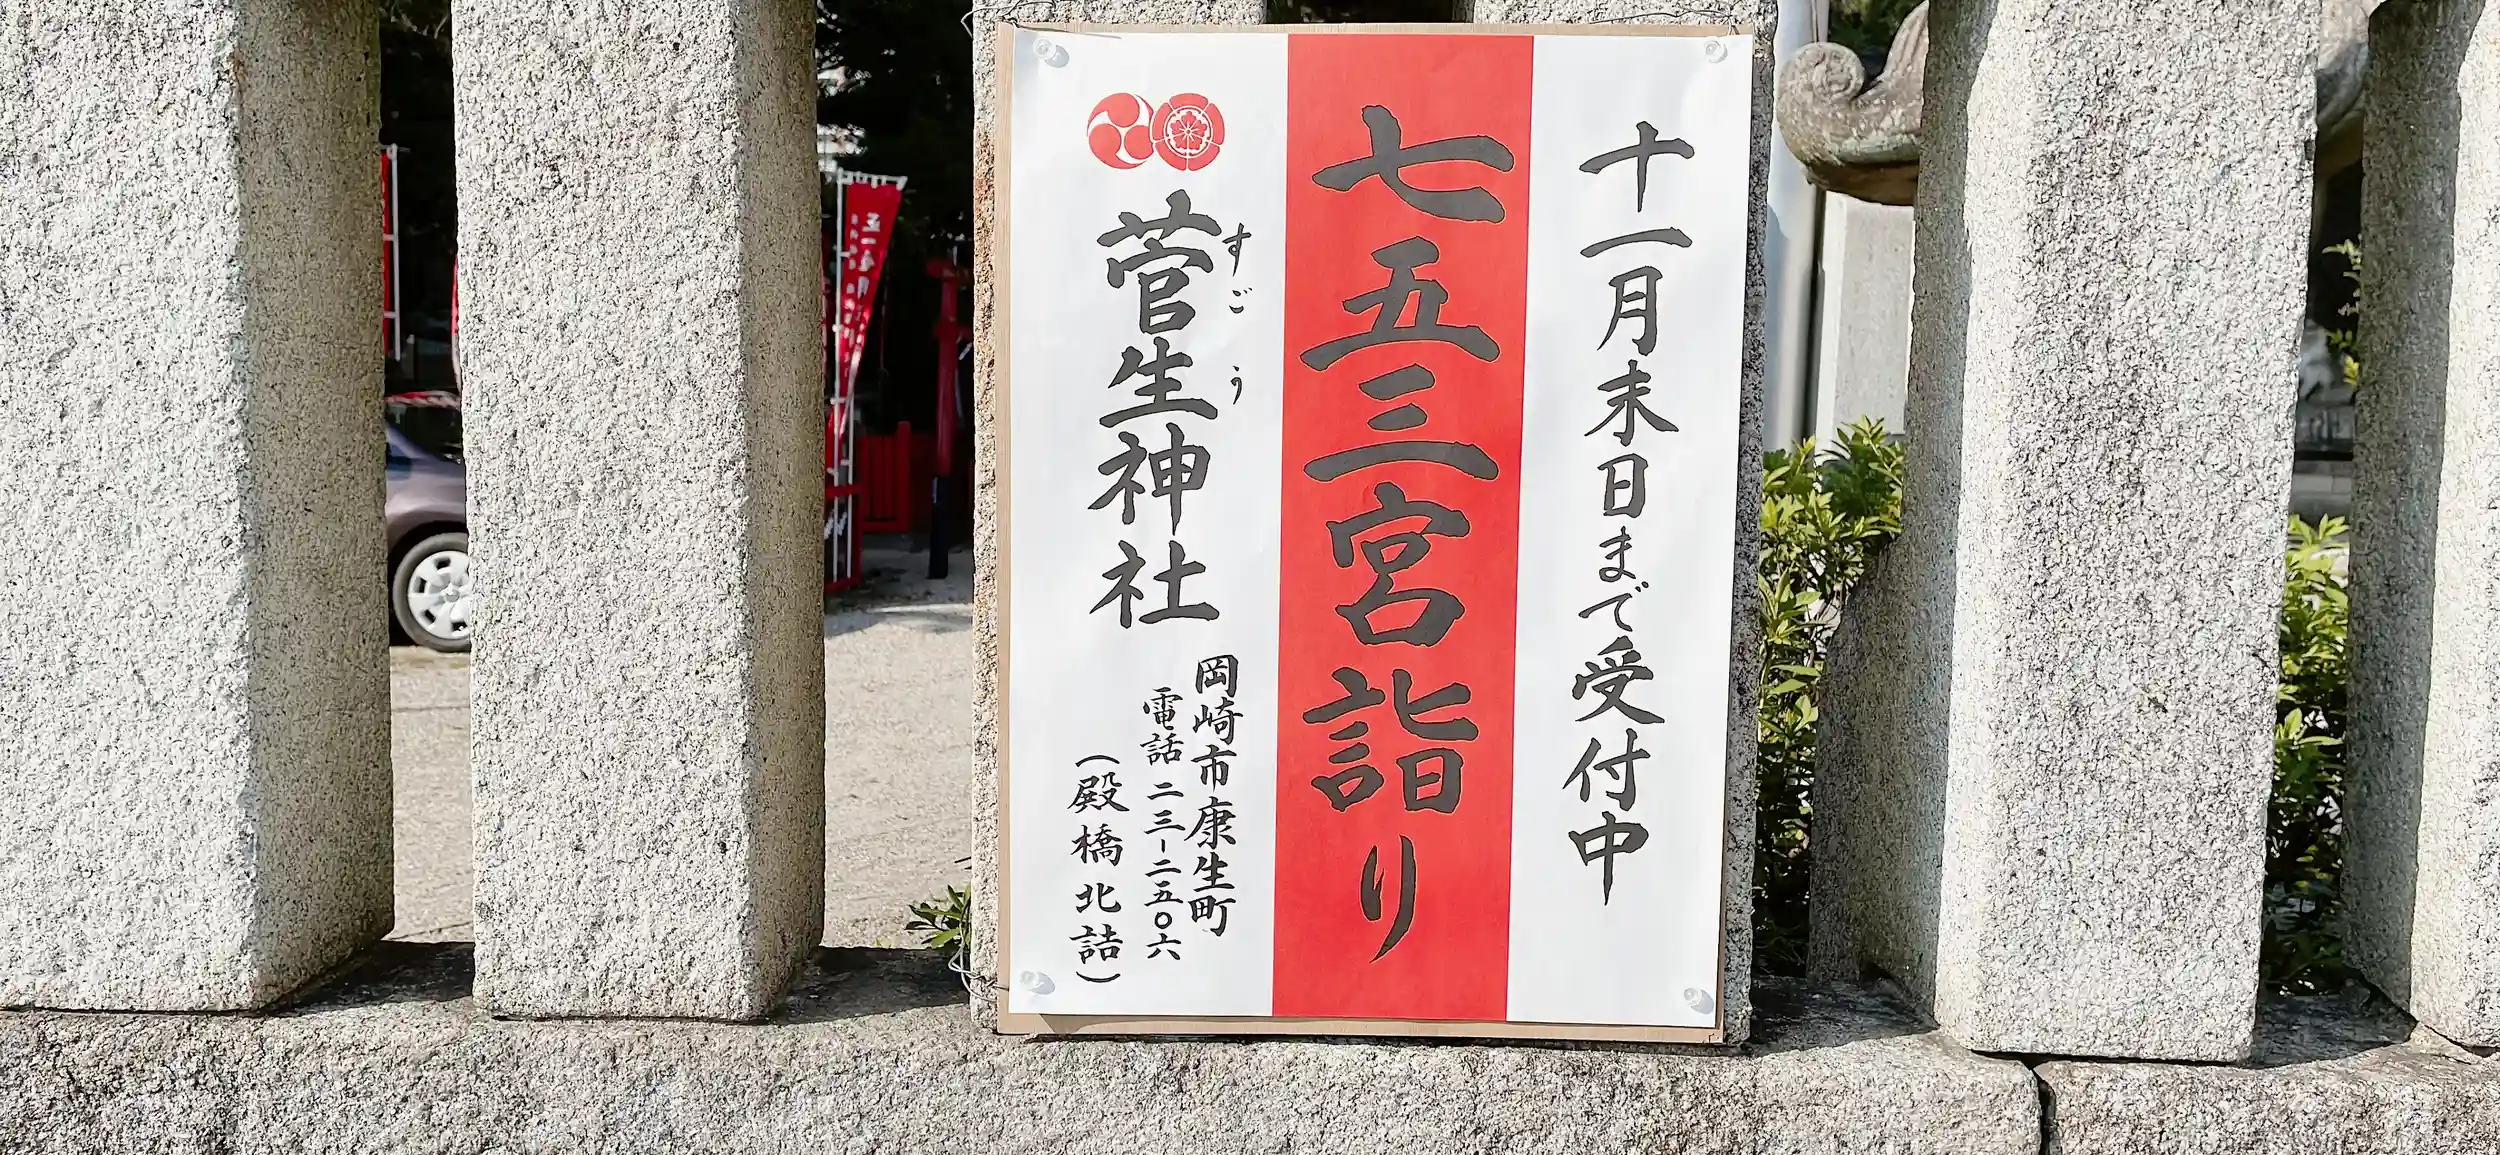 十一月末日まで受付中
七五三宮詣り
すごう
菅生神社
岡崎市康生町
電話 二三-二五〇六
(殿橋北詰)
正一